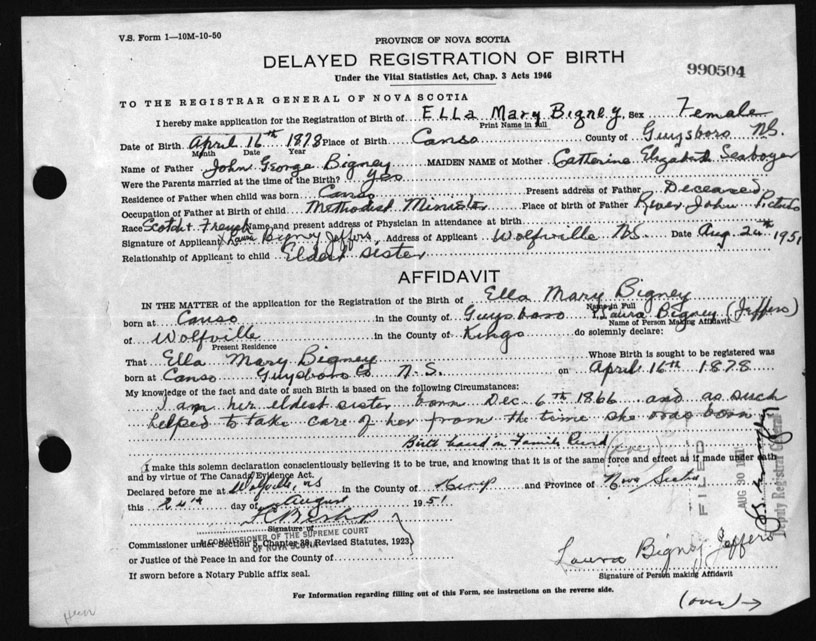 V.S. Form 1—10M-10-50
PROVINCE OF NOVA SCOTIA
DELAYED REGISTRATION OF BIRTH
990504
Under the Vital Statistics Act, Chap. 3 Acts 1946
TO THE REGISTRAR GENERAL OF NOVA SCOTIA
I hereby make application for the Registration of Birth of Ella Mary Bigney Sex Female
Print Name in full
Date of Birth April 16th 1878 Place of Birth Canso County of Guysboro N.S.
Month Date Year
Name of Father John George Bigney MAIDEN NAME of Mother Catherine Elizabeth Seaboyer
Were the Parents married at the time of the Birth? Yes
Residence of Father when child was born Canso Present address of Father Deceased
Occupation of Father at Birth of child Methodist Minister Place of birth of Father River John Pictou
Race Scotch & French Name and present address of Physician in attendance at birth
Signature of Applicant Laura Bigney Jeffers Address of Applicant Wolfville N.S. Date Aug. 24th 1951
Relationship of Applicant to child Eldest sister
AFFIDAVIT
IN THE MATTER of the application for the Registration of the Birth of Ella Mary Bigney
Name in Full
born at Canso in the County of Guysboro Laura Bigney (Jeffers)
Name of Person Making Affidavit
of Wolfville in the County of Kings do solemnly declare:
Present Residence
That Ella Mary Bigney Whose Birth is sought to be registered was
born at Canso Guysboro Co N.S. on April 16th 1878
My knowledge of the fact and date of such Birth is based on the following Circumstances:
I am her eldest sister born Dec 6th 1866 and as such
helped to take care of her from the time she was born
Birth in Family
I make this solemn declaration conscientiously believing it to be true, and knowing that it is of the same force and effect as if made under oath
and by virtue of The Canada Evidence Act.
Declared before me at Wolfville, NS in the County of Kings and Province of Nova Scotia
this 24th day of August 1951
Signature of
A COMMISSIONER OF THE SUPREME COURT
OF NOVA SCOTIA
Commissioner under Section 5, Chapter 38, Revised Statutes, 1923,
or Justice of the Peace in and for the County of
If sworn before a Notary Public affix seal.
Laura Bigney Jeffers
Signature of Person making Affidavit
For Information regarding filling out of this Form, see instructions on the reverse side.
(over)→
FILED
AUG 30 1951
Deputy Registrar General